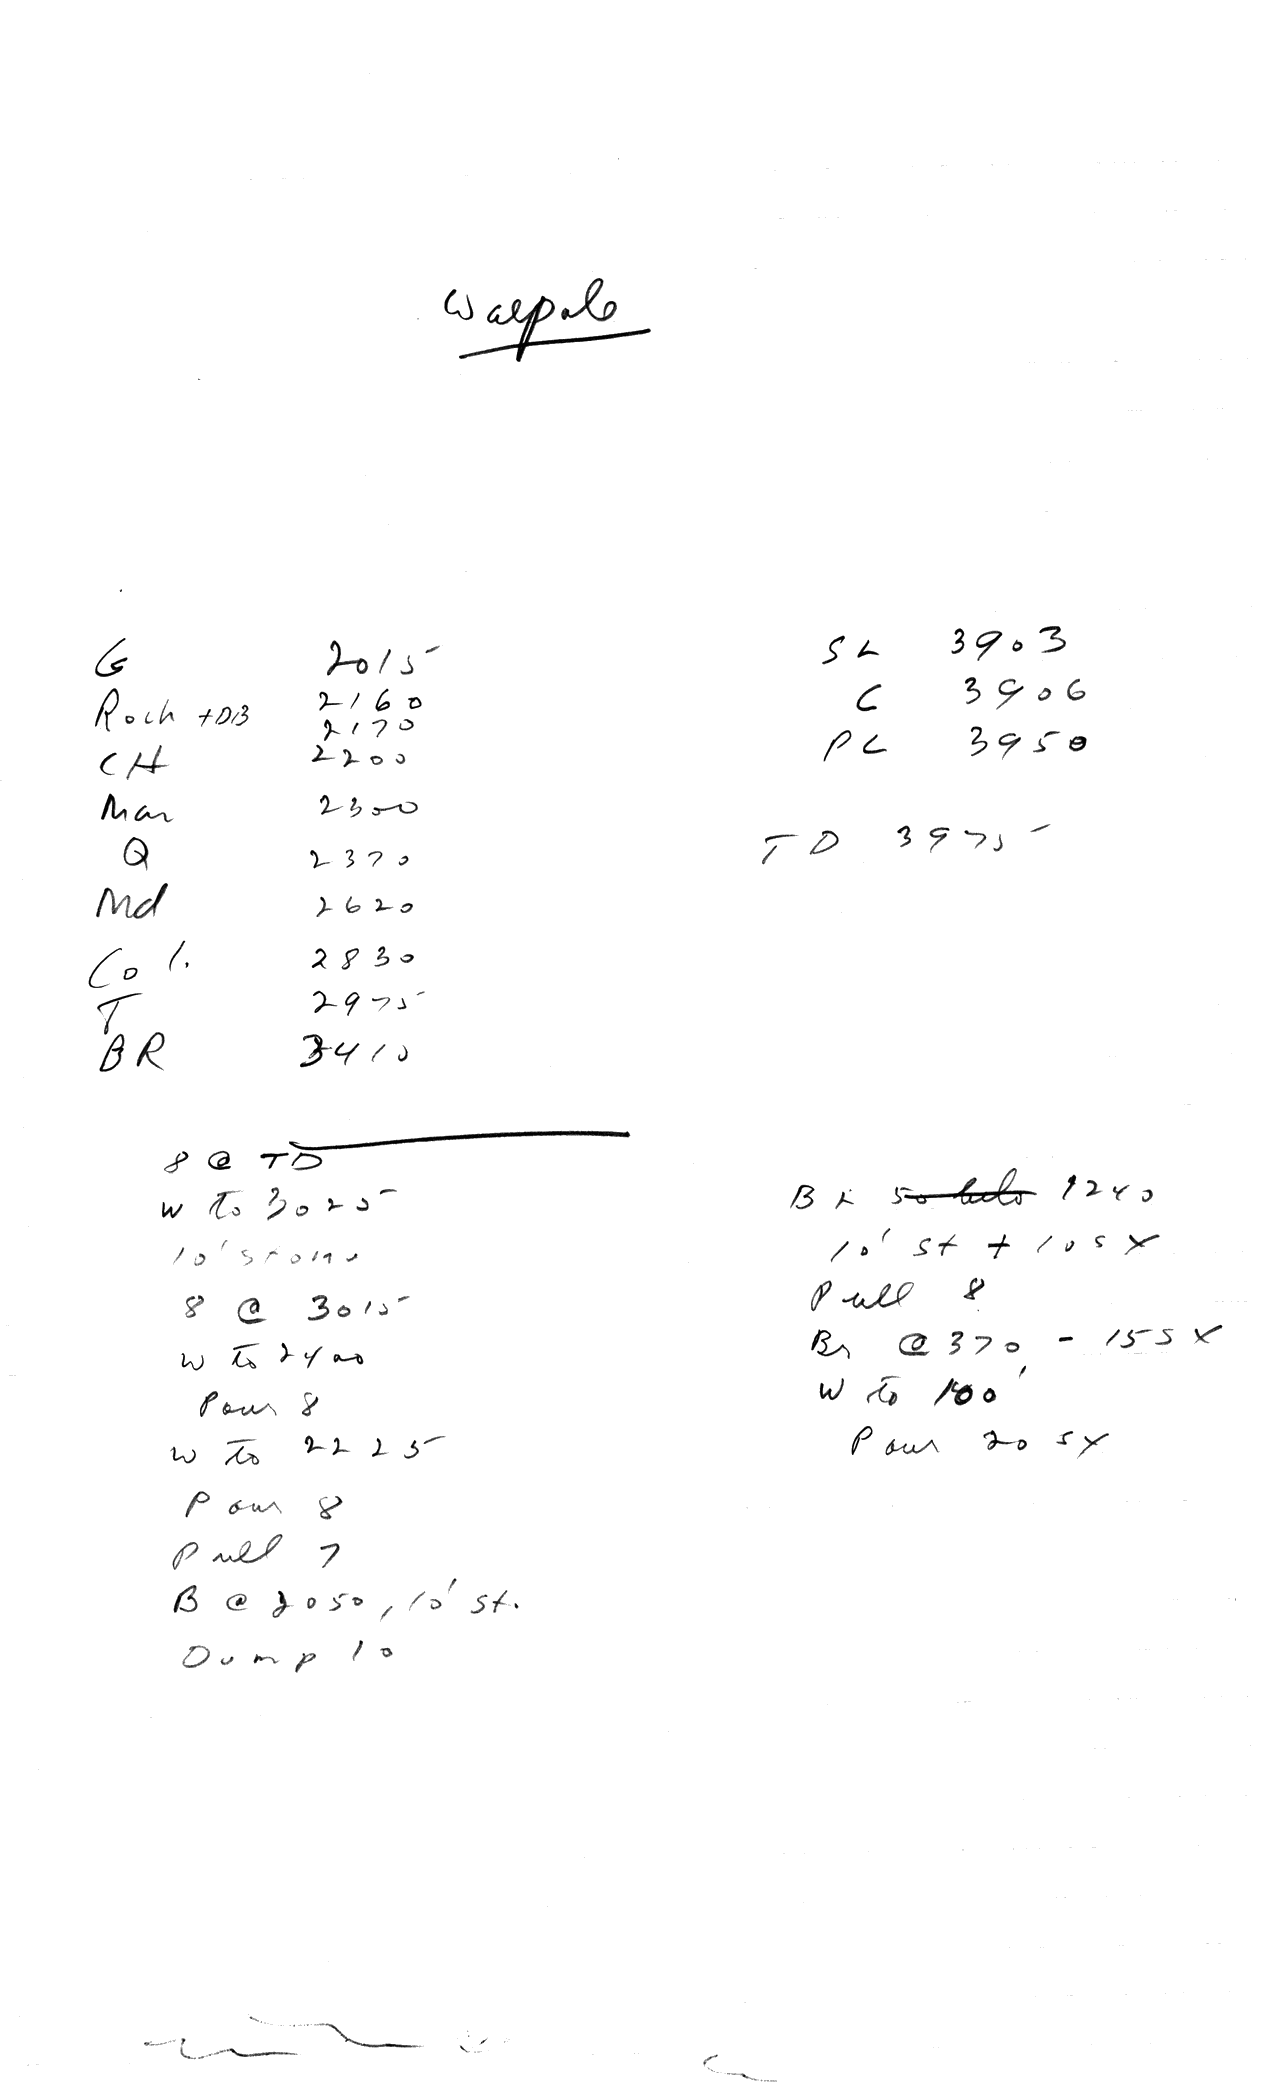 Walpole
G 2015
Roch + DB 2160
2170
CH 2200
Man 2300
Q 2370
Md 2620
Col. 2830
T 2975
BR 3410
SL 3903
C 3906
PC 3950
TD 3975
8 @ TD
W to 3025
10' stone
8 @ 3015
W to 2400
Pour 8
W to 2225
Pour 8
Pull 7
B @ 2050, 10' st.
Dump 10
1240
10' st + 10 sx
Pull 8
Br @ 370 - 15 sx
W to 100'
Pour 20 sx